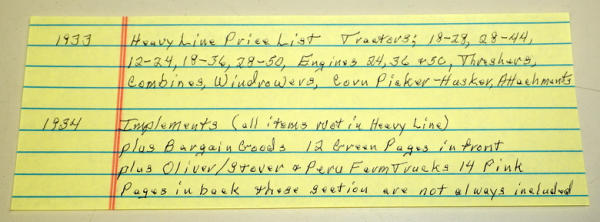 1933 Heavy Line Price List Tractors; 18-28, 28-44,
12-24, 18-36, 28-50, Engines 24, 36 & 50, Threshers,
Combines, Windrowers, Corn Picker-Husker, Attachments
1934 Implements (all items not in Heavy Line)
plus Bargain Goods 12 Green Pages in front
plus Oliver/Stover & Peru Farm Trucks 14 Pink
Pages in back these section are not always included